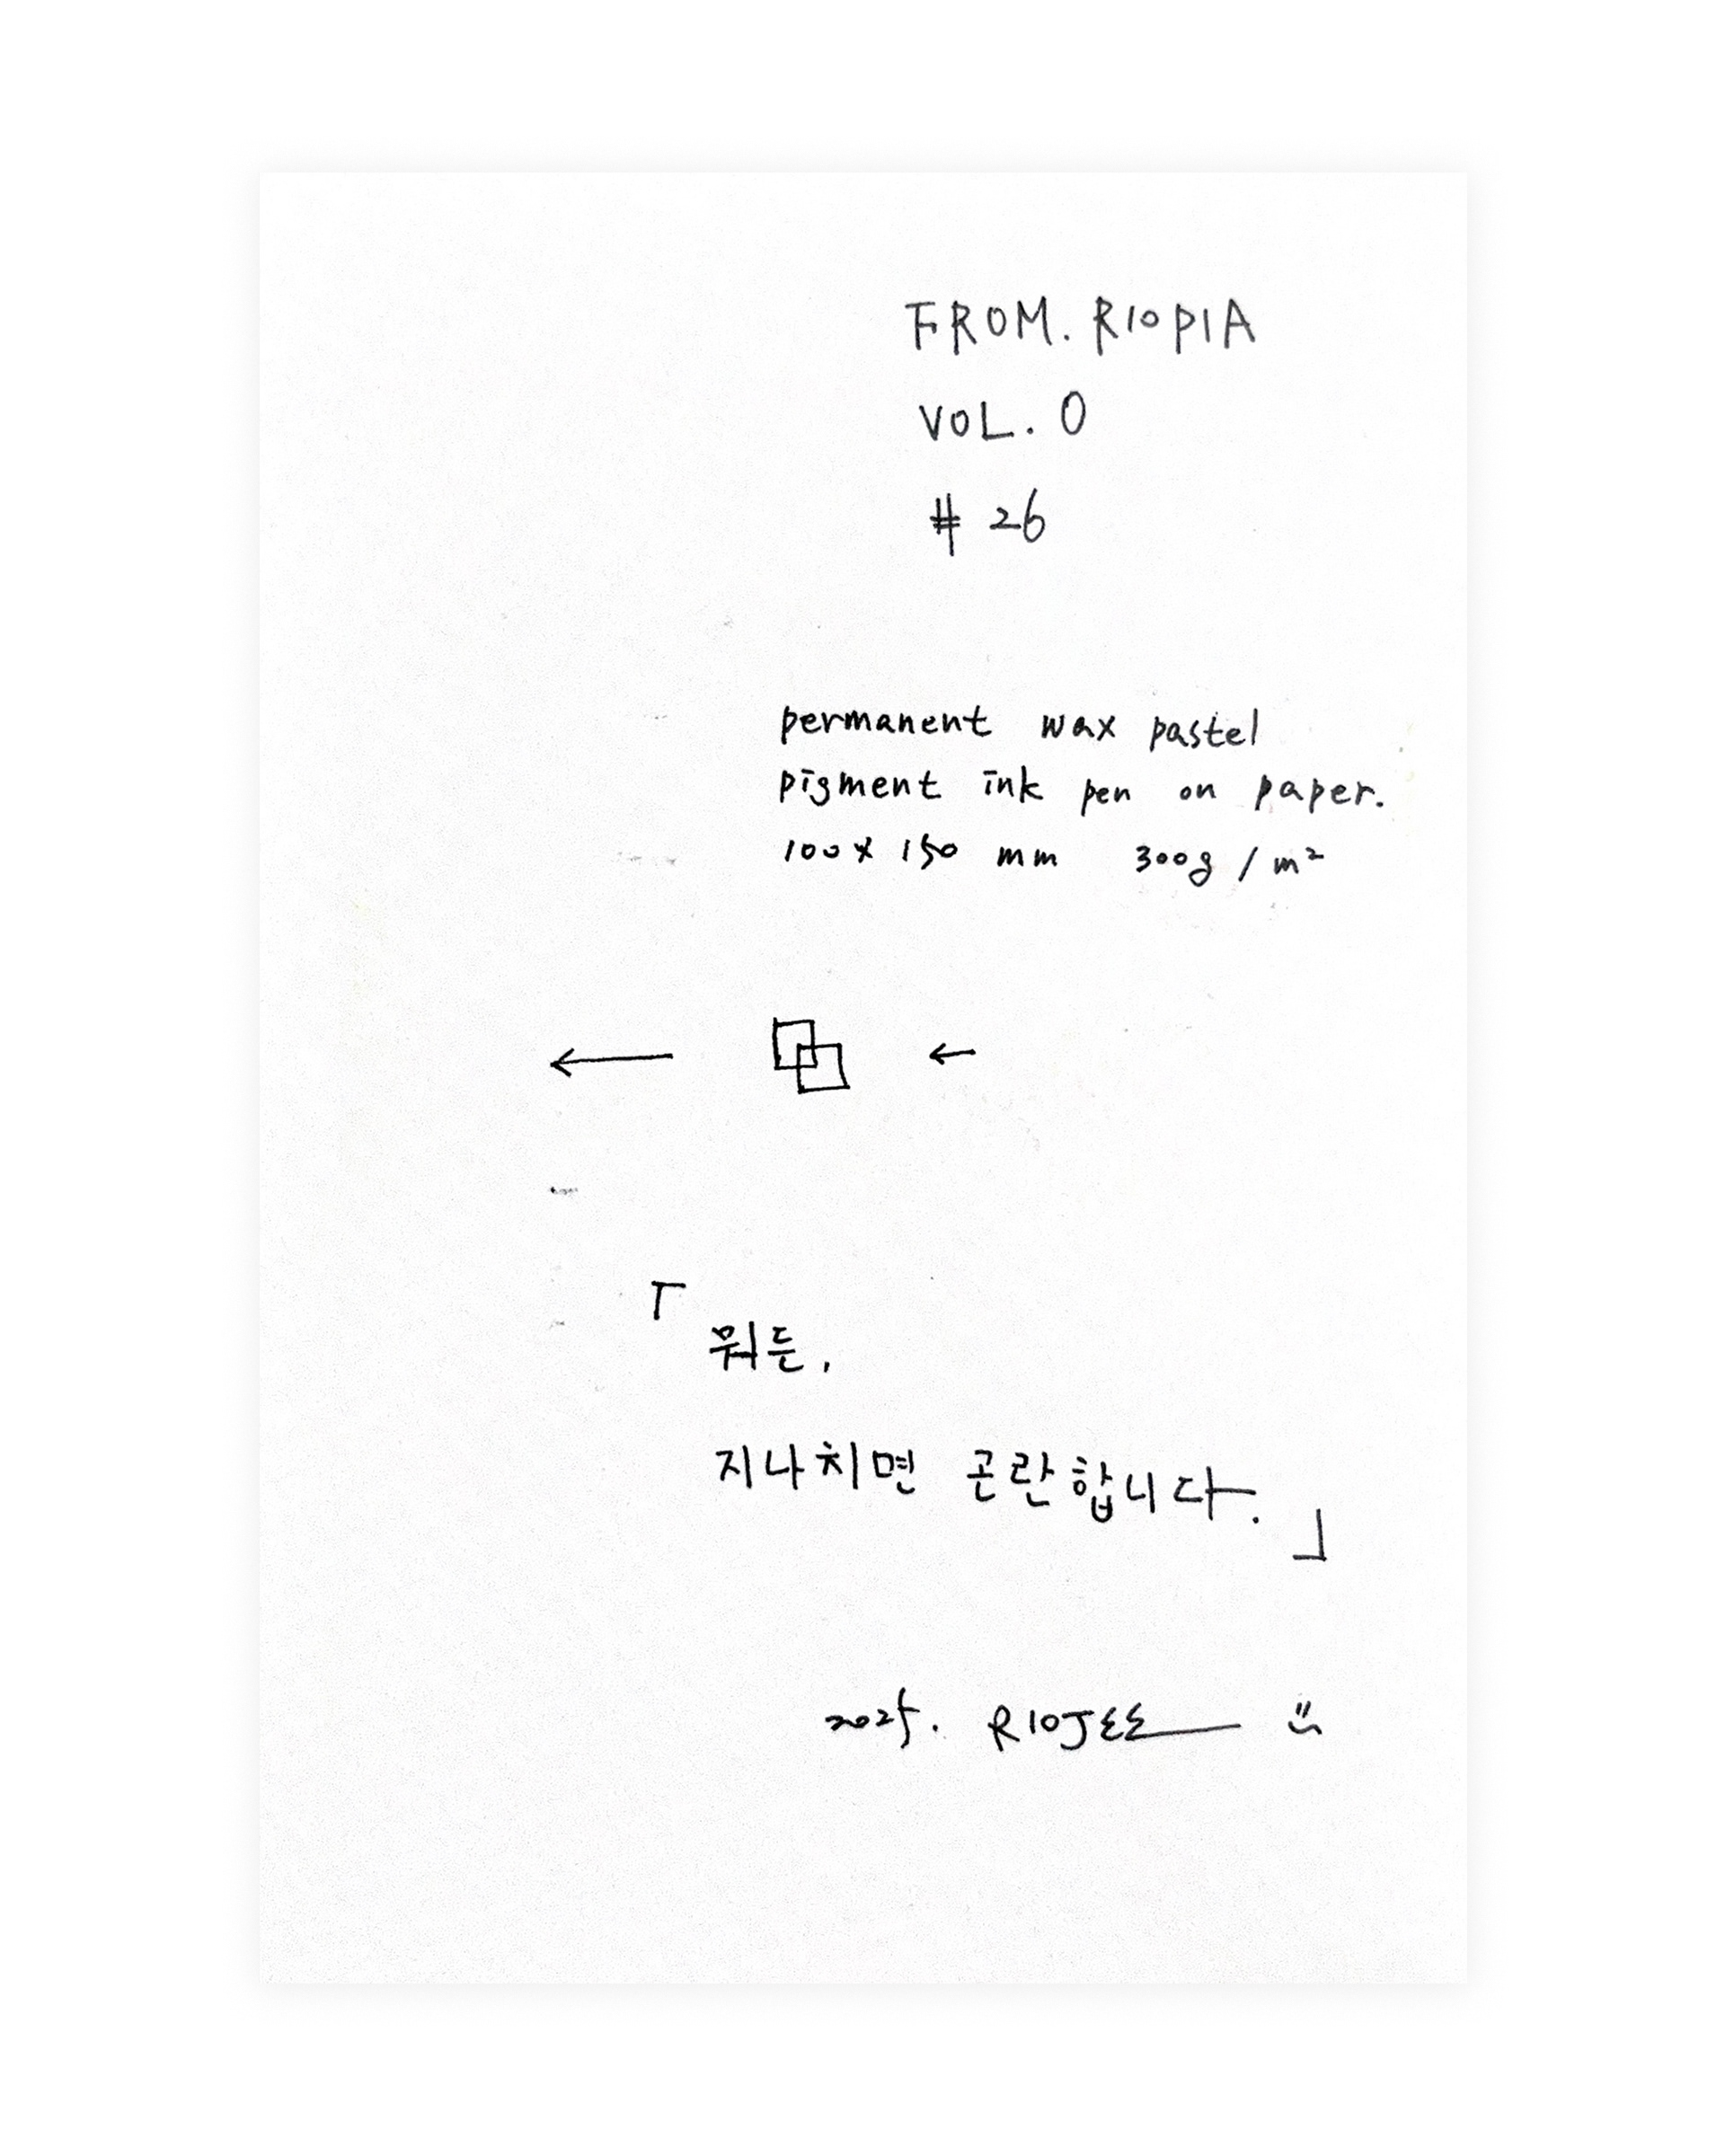 FROM. RIOPIA
VOL. 0
# 26
permanent wax pastel
pigment ink pen on paper.
100 x 150 mm 300g / m²
「뭐든,
지나치면 곤란합니다.」
2025. RIOJEE